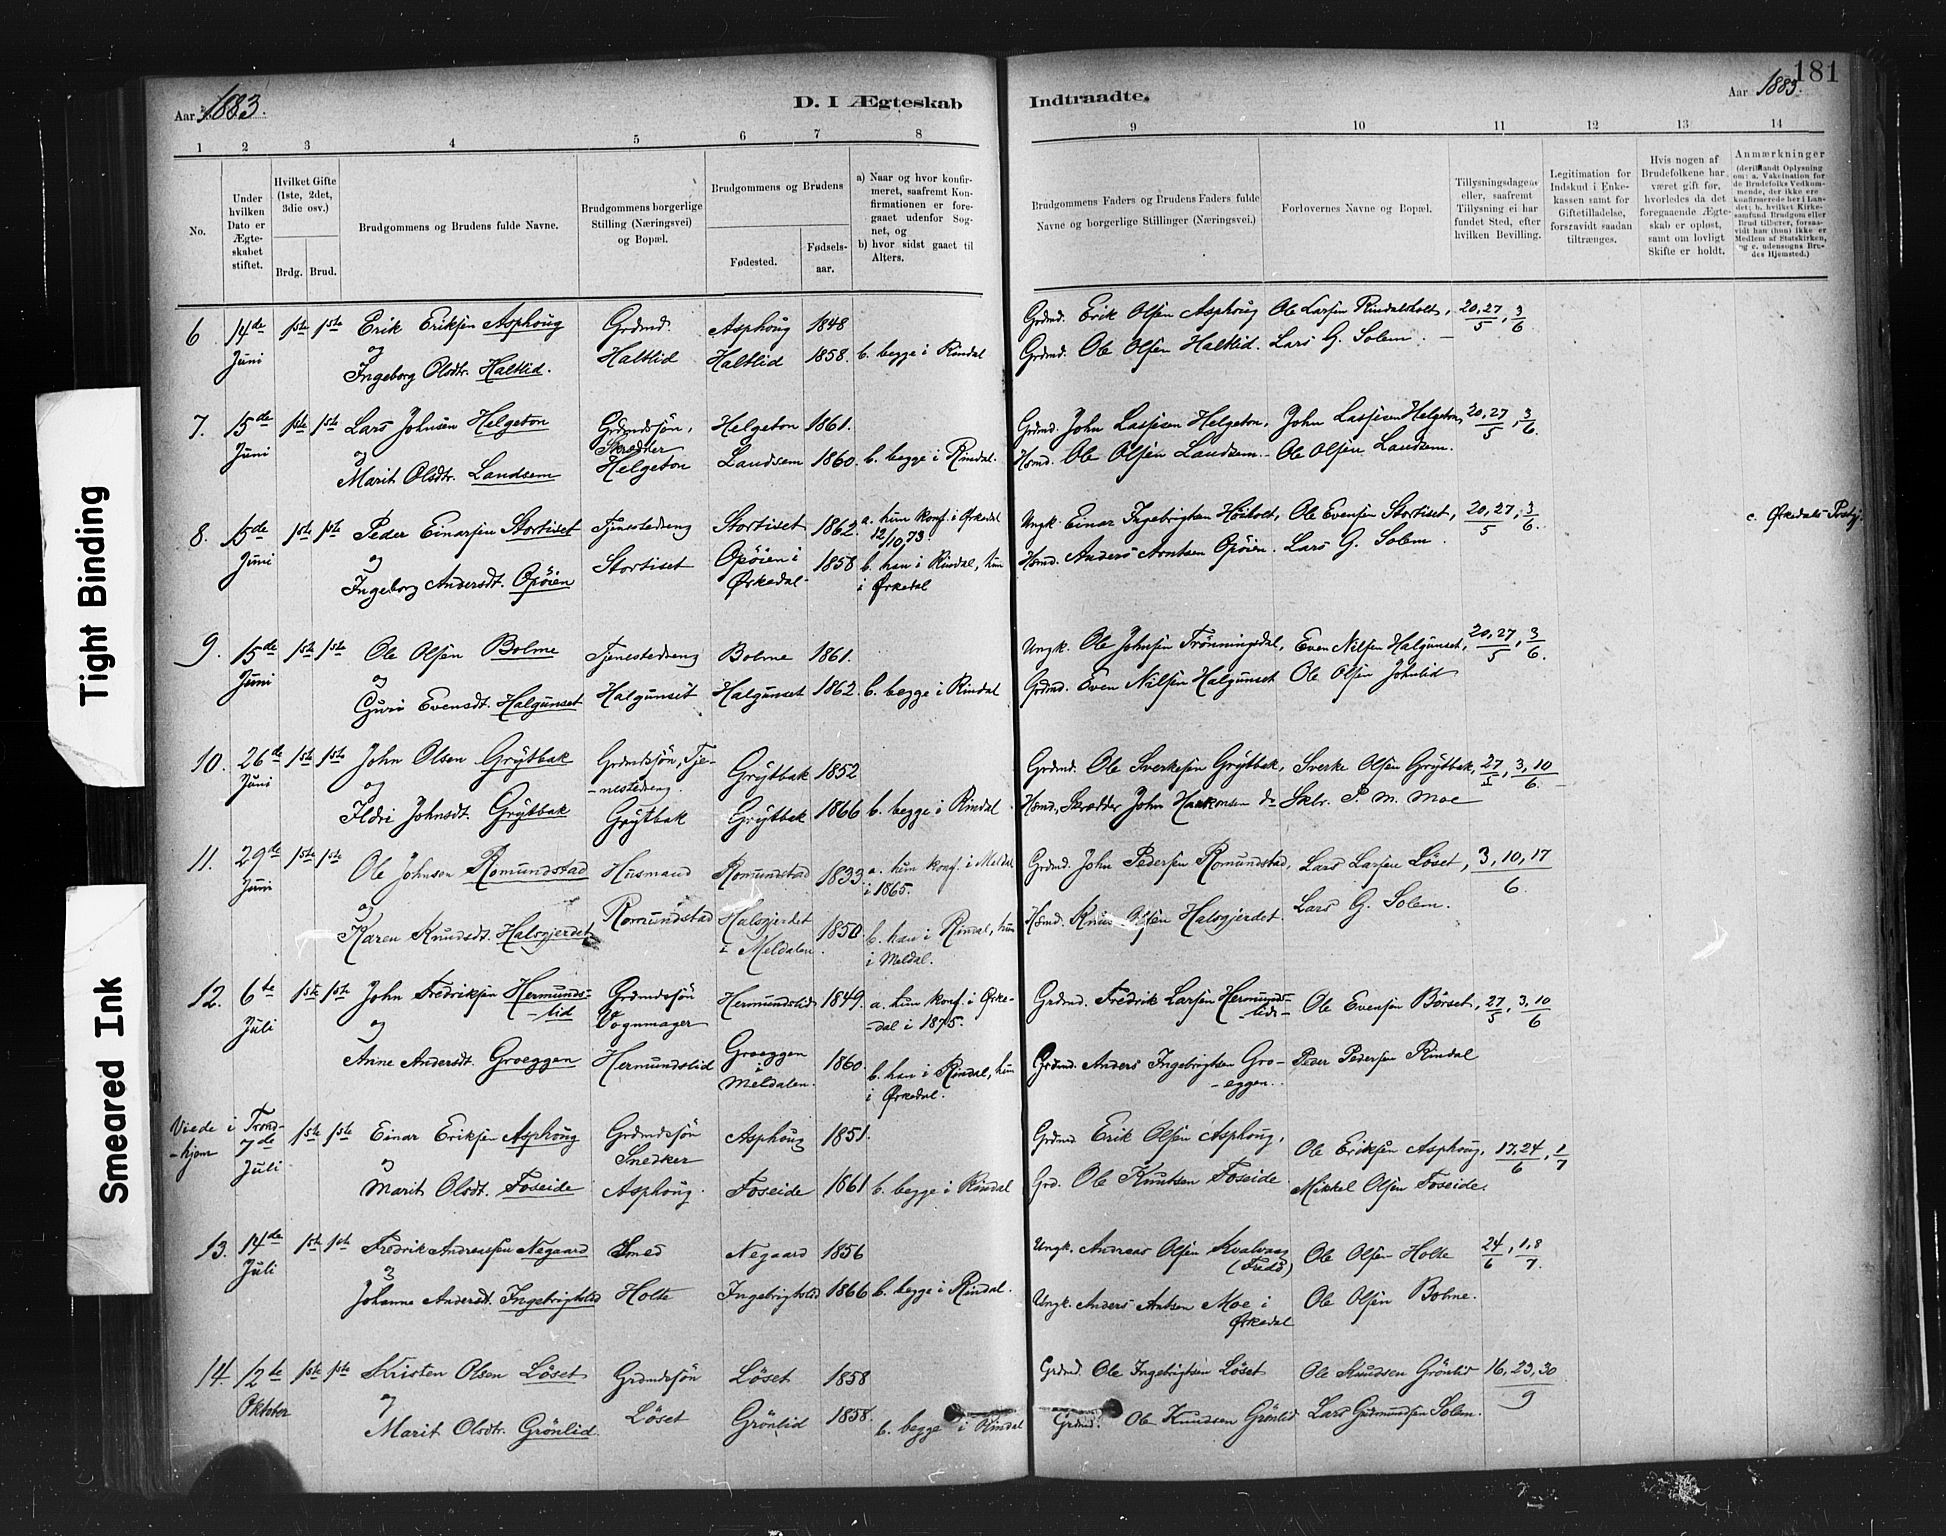 181
Aar 1883.
D. I Ægteskab
Indtraadte.
Aar 1883.
1 2 3 4 5 6 7 8 9 10 11 12 13 14
No.
Under hvilken Dato er Ægteskabet stiftet.
Hvilket Gifte (1ste, 2det, 3die osv.)
Brdg. Brud.
Brudgommens og Brudens fulde Navne.
Brudgommens borgerlige Stilling (Næringsvei) og Bopæl.
Brudgommens og Brudens
Fødested.
Fødsels-aar.
a) Naar og hvor konfirmeret, saafremt Konfirmationen er foregaaet udenfor Sognet, og
b) hvor sidst gaaet til Alters.
Brudgommens Faders og Brudens Faders fulde Navne og borgerlige Stillinger (Næringsvei.)
Forlovernes Navne og Bopæl.
Tillysningsdagene eller, saafremt Tillysning ei har fundet Sted, efter hvilken Bevilling.
Legitimation for Indskud i Enkekassen samt for Giftetilladelse, forsaavidt saadan tiltrænges.
Hvis nogen af Brudefolkene har været gift før, hvorledes da det foregaaende Ægteskab er opløst, samt om lovligt Skifte er holdt.
Anmærkninger (deriblandt Oplysning om: a. Vakcination for de Brudefolks Vedkommende, der ikke ere konfirmerede her i Landet; b. hvilket Kirkesamfund Brudgom eller Brud tilhører, forsaavidt han (hun) ikke er Medlem af Statskirken, og c. udensogns Brudes Hjemsted.)
6 14de 1ste 1ste Erik Eriksen Asphoug Grdmd. Asphoug 1848 Grdmd. Erik Olsen Asphoug Ole Larsen Rindalsholt, 20,27/5, 3/6
Juni og Haltlid Haltlid 1858. b. begge i Rindal Grdmd. Ole Olsen Haltlid. Lars G. Solem.
Ingeborg Olsdtr. Haltlid.
7. 15de 1ste 1ste Lars Johnsen Helgeton Grdmdsøn, Helgeton 1861. Grdmd. John Lassesen Helgeton, John Lassesen Helgeton, 20,27/5, 3/6.
Juni og Skrædder
Marit Olsdtr. Landsem Helgeton Landsem 1860. b. begge i Rindal. Hsmd. Ole Olsen Landsem. Ole Olsen Landsem.
8. 15de 1ste 1ste Peder Einarsen Stortiset Tjenestedreng Stortiset 1862. a. hun konf. i Ørkedal 12/10 73. Ungk. Einar Ingebrigtsen Høiholt, Ole Evensen Stortiset, 20,27/5, 3/6. c. Ørkedals Prstgj.
Juni og Stortiset Opøien i 1858 b. han i Rindal, hun Hsmd. Anders Arntsen Opøien. Lars G. Solem.
Ingeborg Andersdt. Opøien Ørkedal. i Ørkedal
9. 15de 1ste 1ste Ole Olsen Bolme Tjenestedreng Bolme 1861. Ungk. Ole Johnsen Trønningsdal, Even Nilsen Halgunset, 20,27/5, 3/6.
Juni og
Guri Evensdt. Halgunset Halgunset Halgunset 1862. b. begge i Rindal Grdmd. Even Nilsen Halgunset Ole Olsen Johnlid
10. 26de 1ste 1ste John Olsen Grytbak Grdmdsøn, Tje- Grytbak 1852 Grdmd. Ole Sverkesen Grytbak, Sverke Olsen Grytbak, 27/5, 3,10/6.
Juni og -nestedreng.
Ildri Johnsdt. Grytbak Grytbak Grytbak 1866 b. begge i Rindal Hsmd, Skrædder John Haakonsen do Sklr. P. M. Moe
11. 29de 1ste 1ste Ole Johnsen Romundstad Husmand Romundstad 1833 a. hun konf. i Meldal Grdmd. John Pedersen Romundstad, Lars Larsen Løset, 3,10,17/6.
Juni og i 1865.
Karen Knudsdt. Halsgjerdet Romundstad Halsgjerdet 1850 b. han i Rindal, hun Hsmd. Knud Olsen Halsgjerdet. Lars G. Solem.
i Meldalen. i Meldal.
12. 6te 1ste 1ste John Fredriksen Hermunds- Grdmdsøn Hermundslid 1849. a. hun konf. i Ørke- Grdmd. Fredrik Larsen Hermunds- Ole Evensen Børset, 27/5, 3,10/6
Juli og -lid Vognmager -dal i 1875. -lid-
Anne Andersdt. Groeggen Hermundslid Groeggen 1860. b. han i Rindal, hun Grdmd. Anders Ingebrigtsen Gro- Peder Pedersen Rindal
i Meldalen. i Ørkedal. -eggen.
Viede i Trond-
-hjem 7de 1ste 1ste Einar Eriksen Asphoug Grdmdsøn Asphoug 1851. Grdmd Erik Olsen Asphoug, Ole Eriksen Asphoug, 17,24/6, 1/7
Juli og Snedker
Marit Olsdt. Foseide Asphoug. Foseide 1861 b. begge i Rindal Grd. Ole Knutsen Foseide Mikkel Olsen Foseide.
13. 14de 1ste 1ste Fredrik Andreassen Negaard Smed Negaard 1856 Ungk. Andreas Olsen Kvalvaag Ole Olsen Holte 24/6, 1,8/7.
Juli & (Fredø)
Johanne Andersdt. Ingebrigtslid Holte Ingebrigtslid 1866 b. begge i Rindal. Ungk. Anders Antsen Moe i Ole Olsen Bolme.
Ørkedal
14. 12te 1ste 1ste Kristen Olsen Løset Grdmdsøn Løset 1858 Grdmd. Ole Ingebrigtsen Løset Ole Knudsen Grønlid 16,23,30/9
Oktober og Løset
Marit Olsdtr. Grønlid. Grönlid 1858. b. begge i Rindal Grdmd. Ole Knudsen Grønlid Lars Gudmundsen Solem.
Tight Binding
Smeared Ink